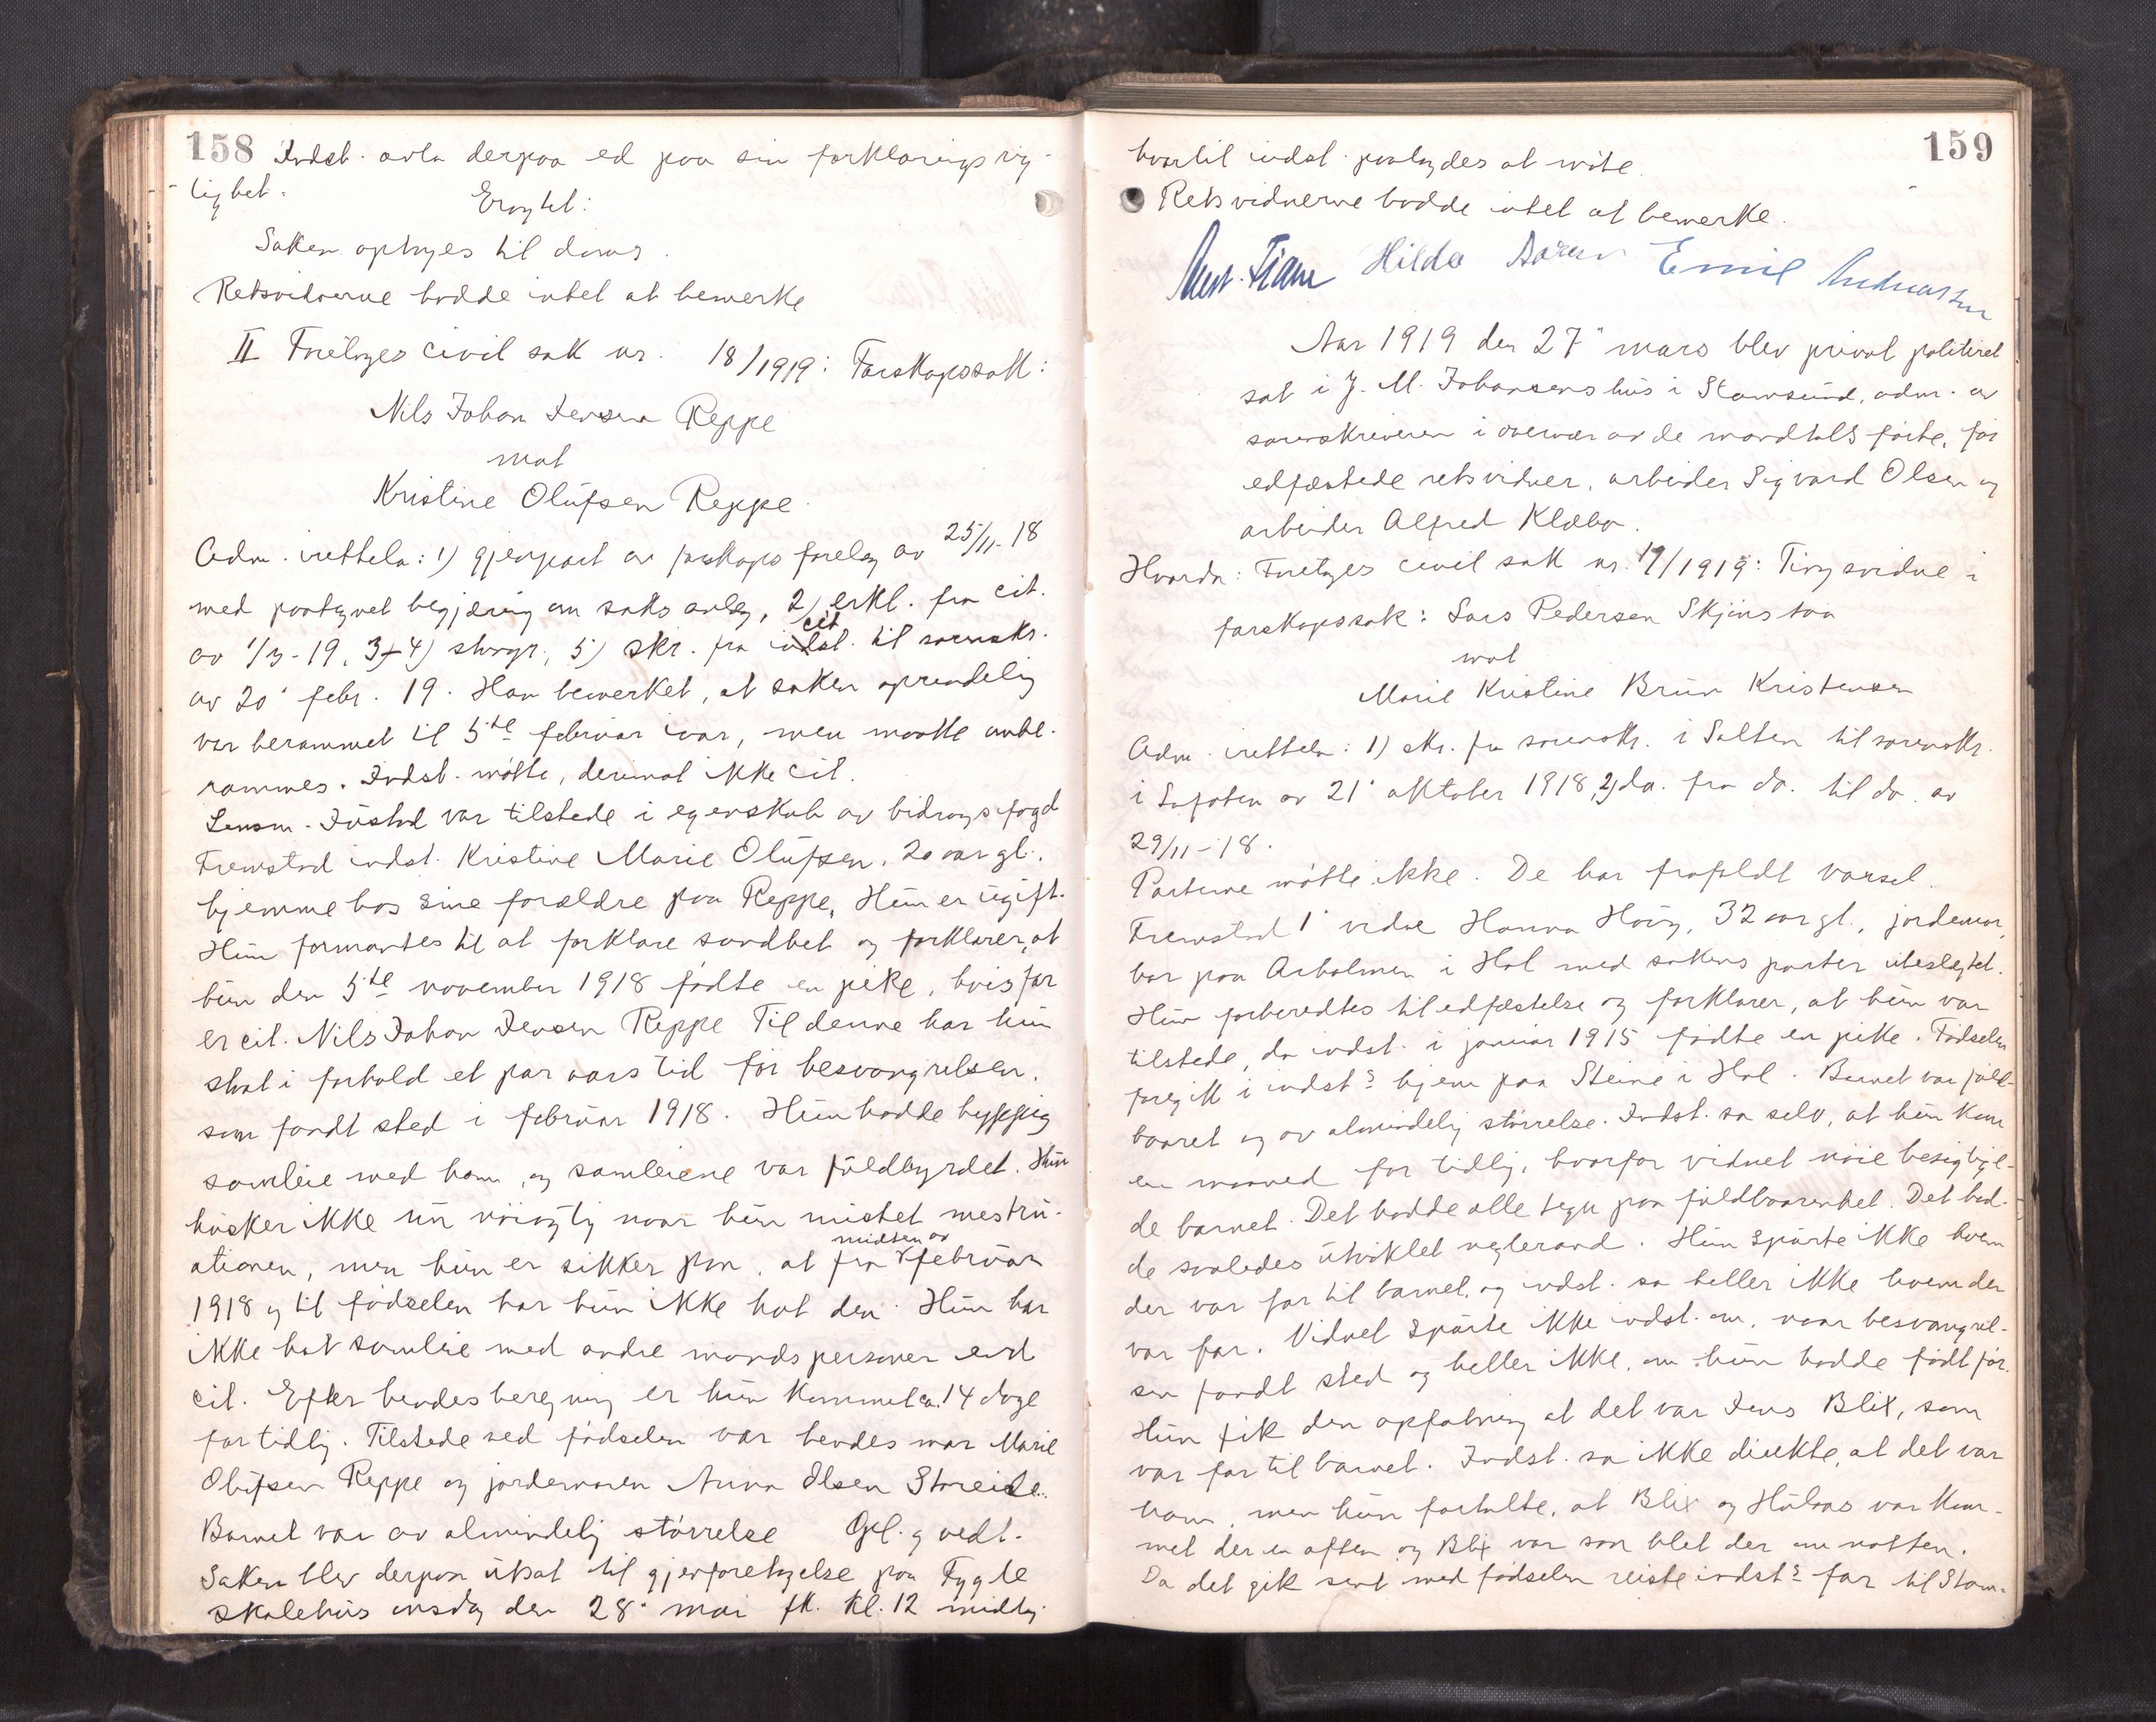 158 Indst. avla derpaa ed paa sin forklarings rig-
tighet.
Eragtet:
Saken optages til doms.
Retsvidnerne hadde intet at bemerke
II Foretages civil sak nr. 18/1919: Farskapssak:
Nils Johan Jensen Reppe
mot
Kristine Olufsen Reppe.
Adm. irettela: 1) gjenpart av farskaps forelæg av 25/11-18
med paategnet begjæring om saks anlæg, 2) erkl. fra cit.
av 1/3-19, 3+4) stevgr., 5) skr. fra cit. til sorenskr.
av 20' febr. 19. Han bemerket, at saken oprindelig
var berammet til 5te februar iaar, men maatte ombe-
rammes. Indst. møtte, derimot ikke cit.
Lensm. Jústad var tilstede i egenskab av bidragsfogd
Fremstod indst. Kristine Marie Olufsen, 20 aar gl.,
hjemme hos sine forældre paa Reppe. Hun er ugift.
Hun formantes til at forklare sandhet og forklarer, at
hun den 5te november 1918 fødte en pike, hvis far
er cit. Nils Johan Jensen Reppe Til denne har hun
staat i forhold et par aars tid før besvangrelsen,
som fandt sted i februar 1918. Hun hadde hyppig
samleie med ham, og samleiene var fuldbyrdet. Hun
husker ikke nu nøiagtig naar hun mistet mestru-
ationen, men hun er sikker paa, at fra midten av februar
1918 og til fødselen har hun ikke hat den. Hun har
ikke hat samleie med andre mandspersoner end
cit. Efter hendes beregning er hun kommet ca. 14 dage
for tidlig. Tilstede ved fødselen var hendes mor Marie
Olufsen Reppe og jordemoren Anna Olsen Storeide.
Barnet var av almindelig størrelse Opl. og vedt.
Saken blev derpaa utsat til gjenforetagelse paa Fygle
skolehus onsdag den 28' mai fk. kl. 12 middag
159
hvortil indst. paalagdes at møte.
Retsvidnerne hadde intet at bemerke.
Hilda Emil Andreassen
Aar 1919 den 27' mars blev privat politiret
sat i J. M. Johansens hus i Stamsund, adm. av
sorenskriveren i overvær av de mandtalsførte, før
edfæstede retsvidner, arbeider Sigvard Olsen og
arbeider Alfred Klæbo.
Hvorda: Foretages civil sak nr. 19/1919: Tingsvidne i
farskapssak: Lars Pedersen Skjinstaa
mot
Marie Kristine Brun Kristensen
Adm. irettela: 1) skr. fra sorenskr. i Salten til sorenskr.
i Lofoten av 21' oktober 1918, 2) do. fra do. til do. av
29/11-18.
Parterne møtte ikke. De har frafaldt varsel.
Fremstod 1' vidne Hanna Høig, 32 aar gl., jordemor,
bor paa Arholmen i Hol med sakens parter ubeslegtet.
Hun forberedtes til edfæstelse og forklarer, at hun var
tilstede, da indst. i januar 1915 fødte en pike. Fødselen
foregik i indst.s hjem paa Steine i Hol. Barnet var fuld-
baaret og av almindelig størrelse. Indst. sa selv, at hun kom
en maaned for tidlig, hvorfor vidnet nøie besigtigt-
de barnet. Det hadde alle tegn paa fuldbaarenhet. Det had-
de saaledes utviklet neglerand. Hun spurte ikke hvem
der var far til barnet, og indst. sa heller ikke hvem der
var far. Vidnet spurte ikke indst. om, naar besvangrel-
sen fandt sted og heller ikke, om hun hadde født før.
Hun fik den opfatning at det var Jens Blix, som
var far til barnet. Indst. sa ikke direkte, at det var
ham, men hun fortalte, at Blix og Hulaas var kom-
met der en aften og Blix var saa blet der om natten.
Da det gik sent med fødselen reiste indst.s far til Stam-